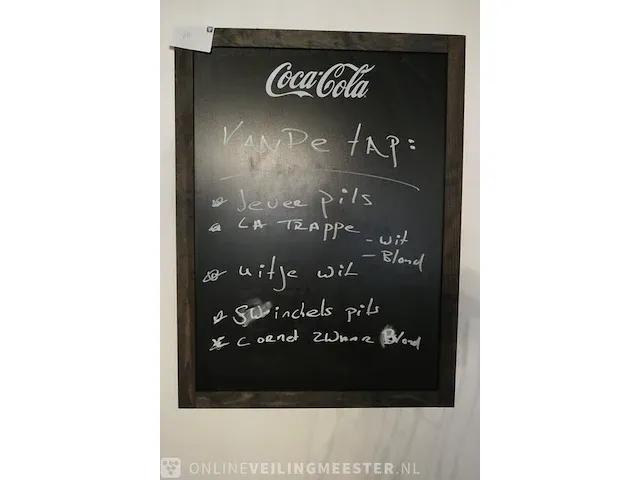 Coca-Cola
VANDe tAP:
Jever pils
LA TRAPPe
- Wit
- Blond
uitje wit
SWinckels pils
Cornet ZWAAR Blond
ONLINEVEILINGMEESTER.NL